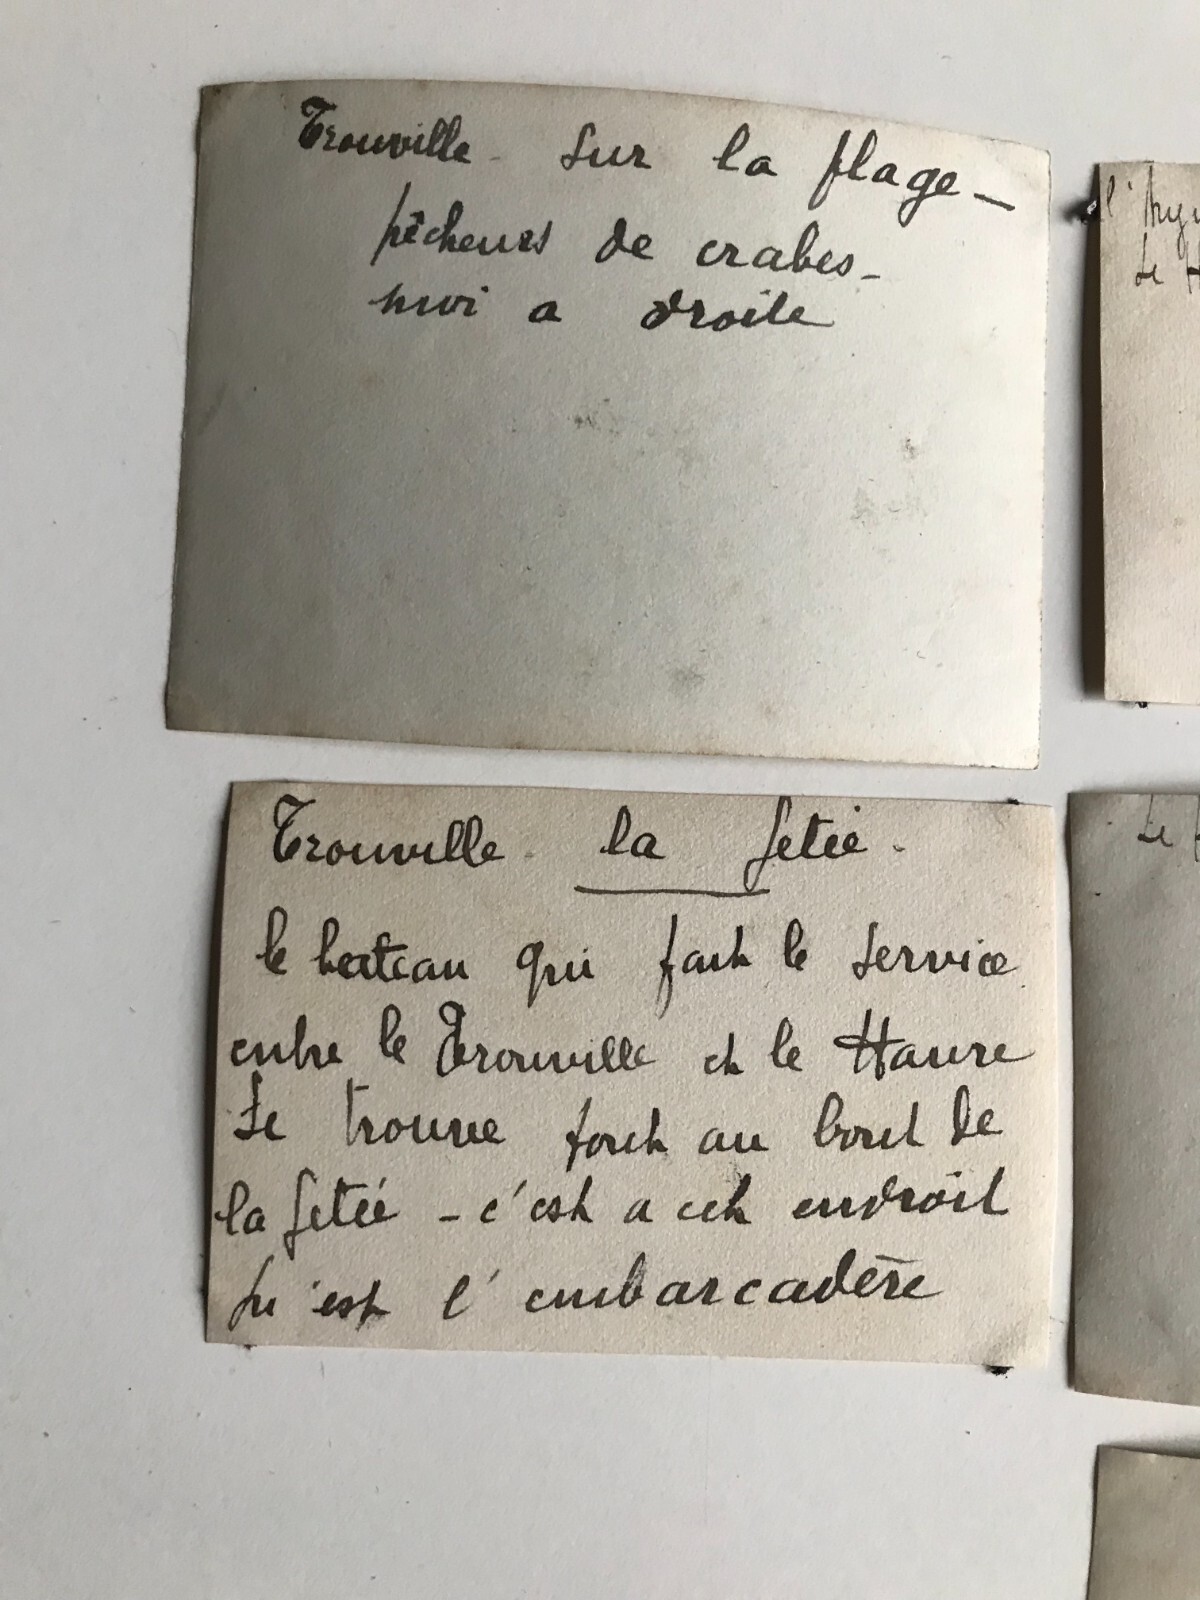 Trouville - sur la plage -
pêcheurs de crabes -
moi a droite
Trouville - la Jetée -
le bateau qui fait le service
entre le Trouville et le Havre
se trouve tout au bout de
la Jetée - c'est a cet endroit
qu'est l'embarcadère
Le H
Le